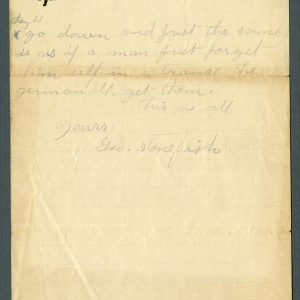 they ll
go down and just the same
as us if a man just forget
him self in a trance the
german ll get them.
This is all
Yours
Geo. Stonefish